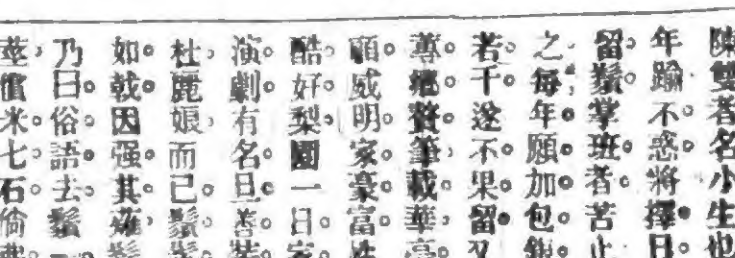 陳雙者名小生也
年踰不惑將擇日
留鬚掌班者苦止
之每年願加包銀
若干遂不果留又
蓴鄉贅筆載華亭
顧威明家豪富性
酷好梨園一日家
演劇有名旦善裝
杜麗娘而已鬚
如戟因强其薙鬚
乃曰俗語去鬚一
莖償米七石倘